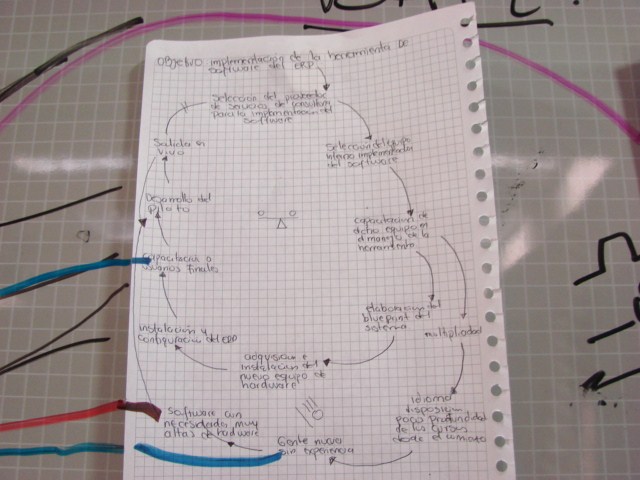 Objetivo implementación de la herramienta de
software del ERP
Selección del proveedor
de servicios de consultoría
para la implementación del
software
Selección del equipo
interno implementador
del software
capacitación de
dicho equipo en
el manejo de la
herramienta
elaboración del
blueprint del
sistema
multiplicidad
adquisición e
instalación del
nuevo equipo de
hardware
instalación y
configuración del ERP
capacitación a
usuarios finales
Desarrollo del
Piloto
Salida en
vivo
Idioma
disposición
poca profundidad
de los cursos
desde el
Gente nueva
sin experiencia
Software con
necesidades muy
altas de hardware